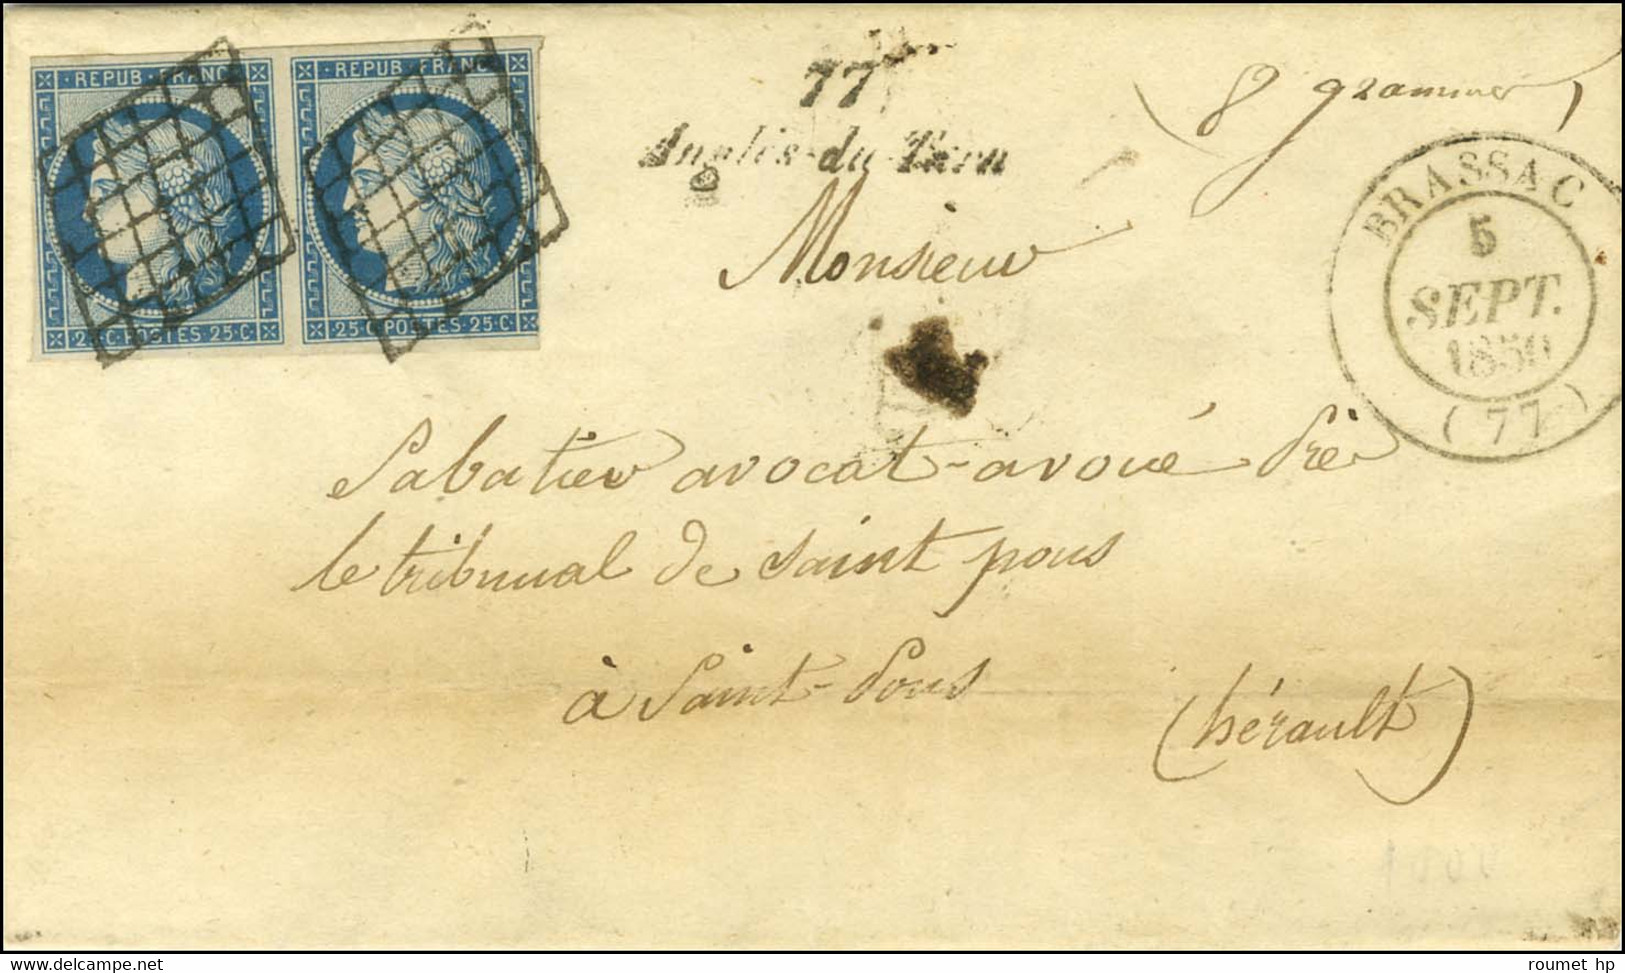 REPUB. FRANC
REPUB. FRANC
25·C·POSTES·25·C·
25·C·POSTES·25·C·
77
Anglès-du-Tarn
8 grammes
BRASSAC
5
SEPT.
1850
(77)
Monsieur
Sabatier avocat-avoué Près
le tribunal de Saint pons
à Saint-Pons
(hérault)
roumet hp